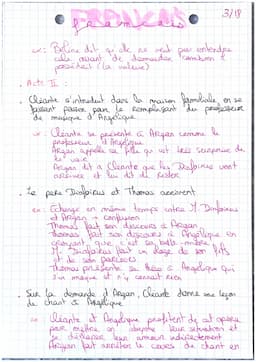 FRANÇAIS
3/18
ex: Béline dit qu'elle ne veut pas entendre
cela avant de demander combien il
possédait (la valeur)
• Acte II :
• Cléante s'introduit dans la maison familiale, en se
faisant passer pour le remplaçant du professeur
de musique d'Angélique
ex: Cléante se présente à Argan comme le
professeur d'Angélique
Argan appelle sa fille qui est bien surprise de
le voir
Argan dit à Cléante que les Diafoirus vont
arriver et lui dit de rester
• Le père Diafoirus et Thomas arrivent
ex: Échange en même temps entre M. Diafoirus
et Argan → confusion
Thomas fait son discours à Argan
Thomas fait son discours à Angélique en
croyant que c'est sa belle-mère
M. Diafoirus fait un éloge de son fils
et de son parcours
Thomas présente sa thèse à Angélique qui
un image et n'y connait rien
• Sur la demande d'Argan, Cléante donne une leçon
de chant à Angélique
ex: Cléante et Angélique profitent de cet opéra
pour mettre en abyme leur situation et
se déclarer leur amour indirectement
Argan fait arrêter le cours de chant en